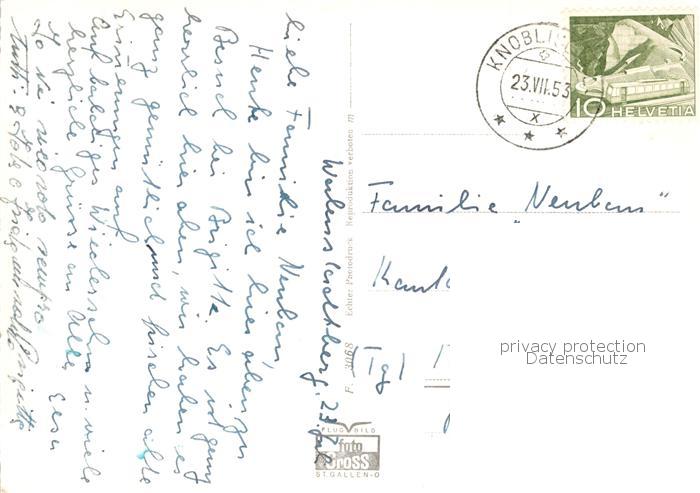 Liebe Familie Neubau,
Heute bin ich hier oben zu
Besuch bei Brigitte. Es ist ganz
herrlich hier oben, wir haben es
ganz gemütlich und frischen alte
Erinnerungen auf.
Auf baldiges Wiedersehen u. viele
herzliche Grüsse an Alle,
Io vi ricordo sempre
tutti
Echter Photodruck Reproduktion verboten
F. 3068
FLUG BILD
foto
Gross
ST. GALLEN-O
KNOBLI
23.VII.53
X
10 HELVETIA
Familie "Neubau"
privacy protection
Datenschutz